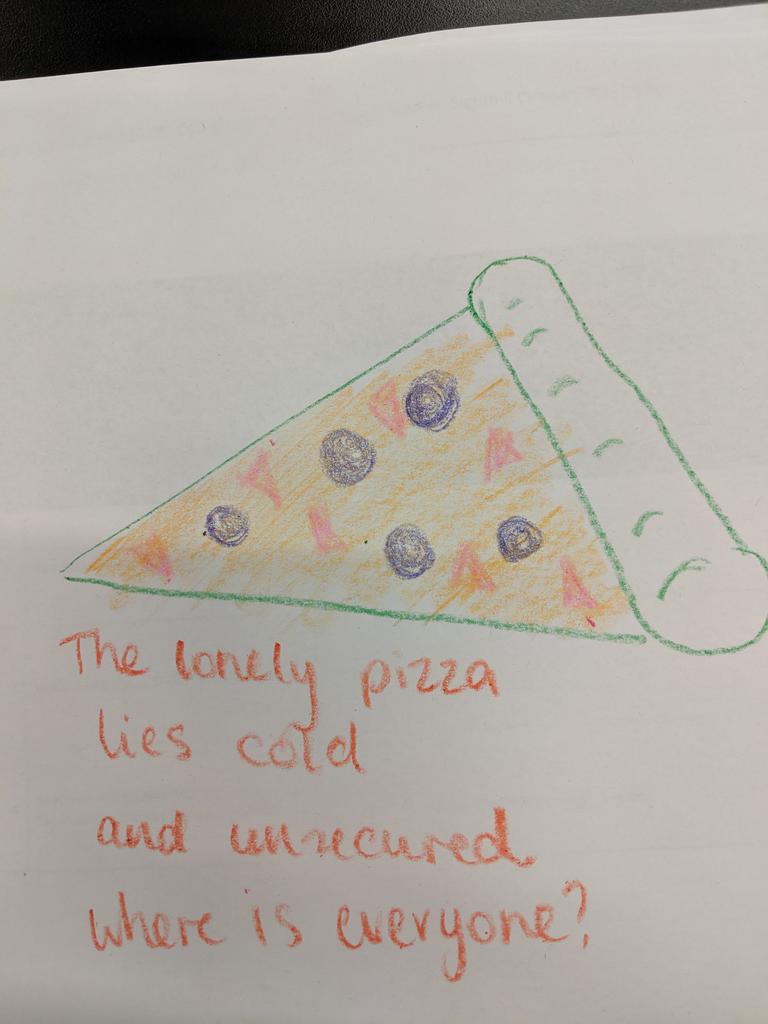 The lonely pizza
lies cold
and unsecured
where is everyone?